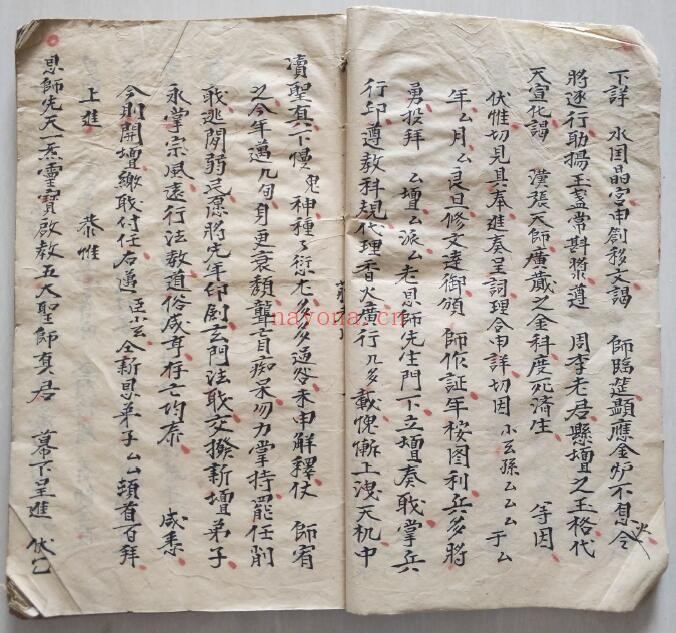 下詳 水国晶宮申創移文謁 師臨莚顕應金炉不息令火
將逐行助揚玉盞常斟槳遵 周李老君懸壇之玉格代
天宣化謁 漢張天師廣藏之金科度死濟生 等因
伏惟切見具奉進奏呈詞理合申詳切因 小玄孫厶厶厶 于厶
年厶月厶良旦修文逹御頒 師作証年桉图利兵多將
勇投拜 厶壇厶派厶老恩師先生門下立壇奏戝掌兵
行印遵教科規代理香火廣行几多載愧慚上洩天机中
瀆聖真下慢鬼神種了愆尤多多過咎未申解釋仗 師宥
之今年邁几旬身更衰頹聾盲痴呆勿力掌持罷任削
戝逃閑弱忌愿將先年印劄玄門法戝交撥新壇弟子
永掌宗風遠行法教道俗咸亨存亡均泰 咸悉
今則開壇繳戝付任右遞 臣厶玄仝新恩弟子厶厶頓首百拜
上進 恭惟
恩師先天一炁靈寶啟教五大聖師真君 幕下呈進 伏乞
nayona.cn